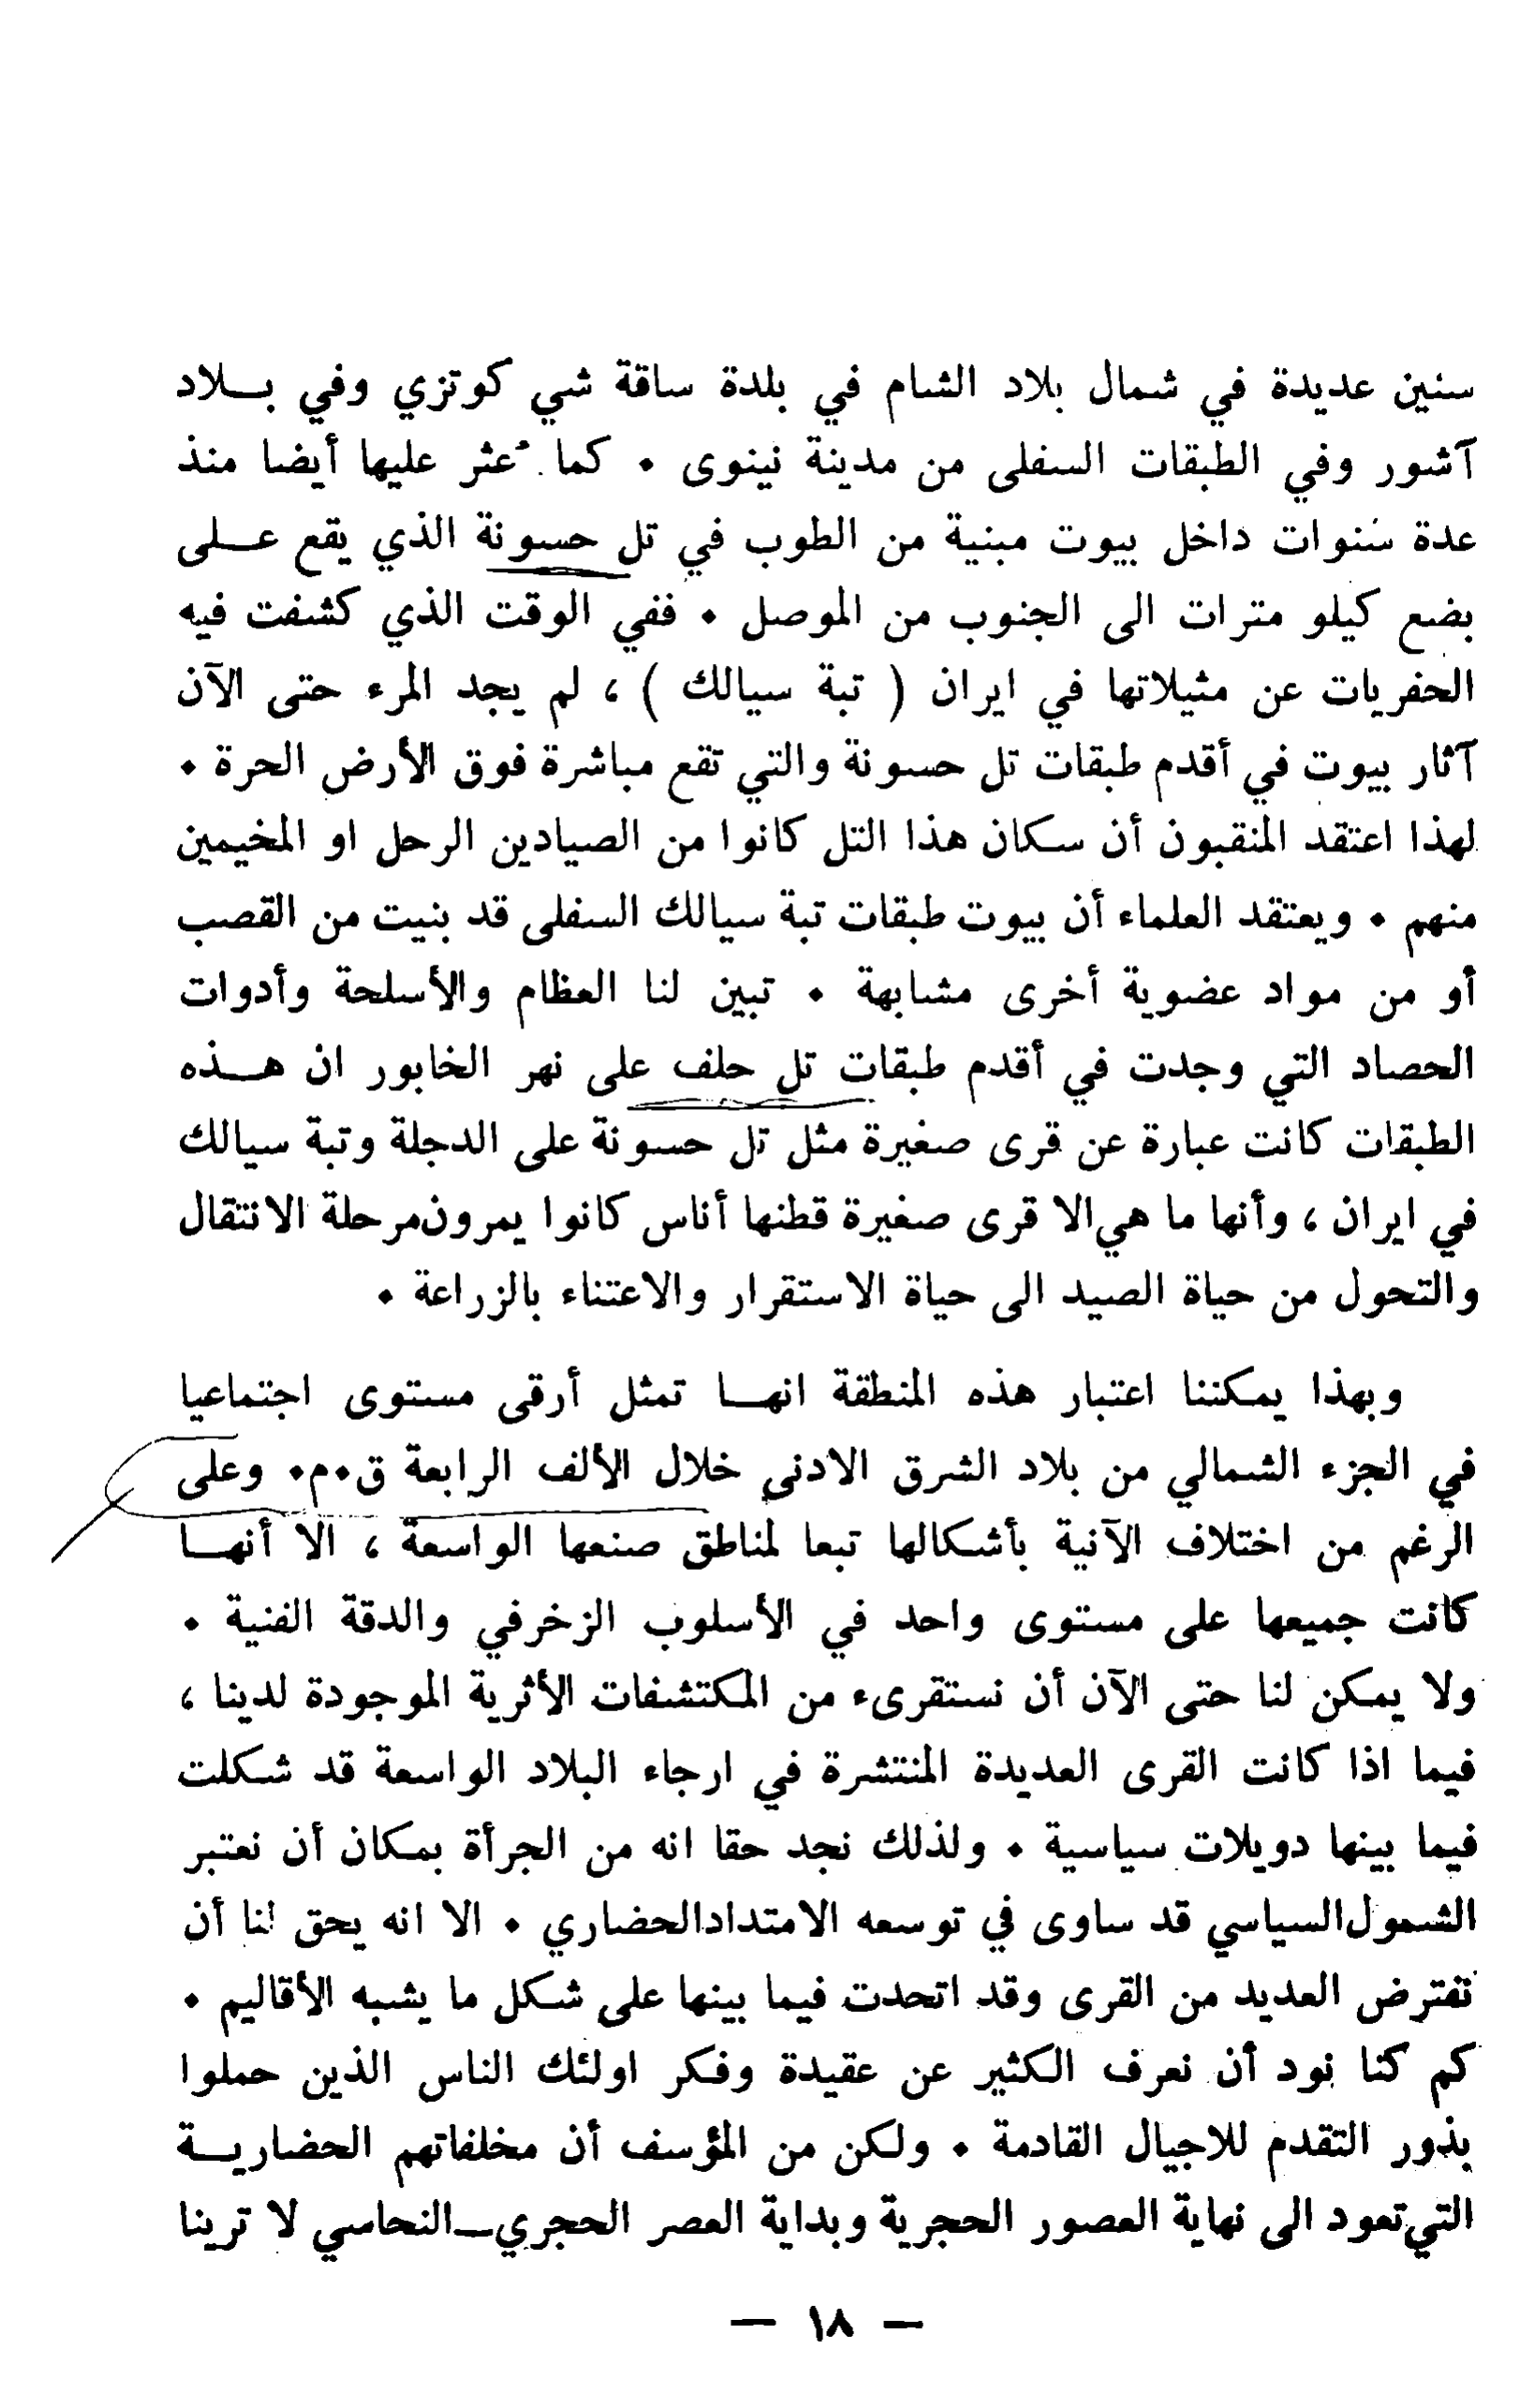 سنين عديدة في شمال بلاد الشام في بلدة ساقة شي كوتزي وفي بـلاد
آشور وفي الطبقات السفلى من مدينة نينوى • كما عُثر عليها أيضا منذ
عدة سنوات داخل بيوت مبنية من الطوب في تل حسونة الذي يقع عـلى
بضع كيلو مترات الى الجنوب من الموصل • ففي الوقت الذي كشفت فيه
الحفريات عن مثيلاتها في ايران ( تبة سيالك ) ، لم يجد المرء حتى الآن
آثار بيوت في أقدم طبقات تل حسونة والتي تقع مباشرة فوق الأرض الحرة •
لهذا اعتقد المنقبون أن سكان هذا التل كانوا من الصيادين الرحل او المخيمين
منهم • ويعتقد العلماء أن بيوت طبقات تبة سيالك السفلى قد بنيت من القصب
أو من مواد عضوية أخرى مشابهة • تبين لنا العظام والأسلحة وأدوات
الحصاد التي وجدت في أقدم طبقات تل حلف على نهر الخابور ان هـذه
الطبقات كانت عبارة عن قرى صغيرة مثل تل حسونة على الدجلة وتبة سيالك
في ايران ، وأنها ما هي الا قرى صغيرة قطنها أناس كانوا يمرون مرحلة الانتقال
والتحول من حياة الصيد الى حياة الاستقرار والاعتناء بالزراعة •
وبهذا يمكننا اعتبار هذه المنطقة انهـا تمثل أرقى مستوى اجتماعيا
في الجزء الشمالي من بلاد الشرق الادنى خلال الألف الرابعة ق•م• وعلى
الرغم من اختلاف الآنية بأشكالها تبعا لمناطق صنعها الواسعة ، الا أنهـا
كانت جميعها على مستوى واحد في الأسلوب الزخرفي والدقة الفنية •
ولا يمكن لنا حتى الآن أن نستقرىء من المكتشفات الأثرية الموجودة لدينا ،
فيما اذا كانت القرى العديدة المنتشرة في ارجاء البلاد الواسعة قد شكلت
فيما بينها دويلات سياسية • ولذلك نجد حقا انه من الجرأة بمكان أن نعتبر
الشمول السياسي قد ساوى في توسعه الامتداد الحضاري • الا انه يحق لنا أن
نفترض العديد من القرى وقد اتحدت فيما بينها على شكل ما يشبه الأقاليم •
كم كنا نود أن نعرف الكثير عن عقيدة وفكر اولئك الناس الذين حملوا
بذور التقدم للاجيال القادمة • ولكن من المؤسف أن مخلفاتهم الحضاريـة
التي تعود الى نهاية العصور الحجرية وبداية العصر الحجري ـ النحاسي لا ترينا
— ١٨ —